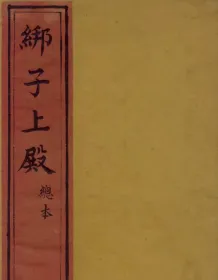 綁子上殿
總本